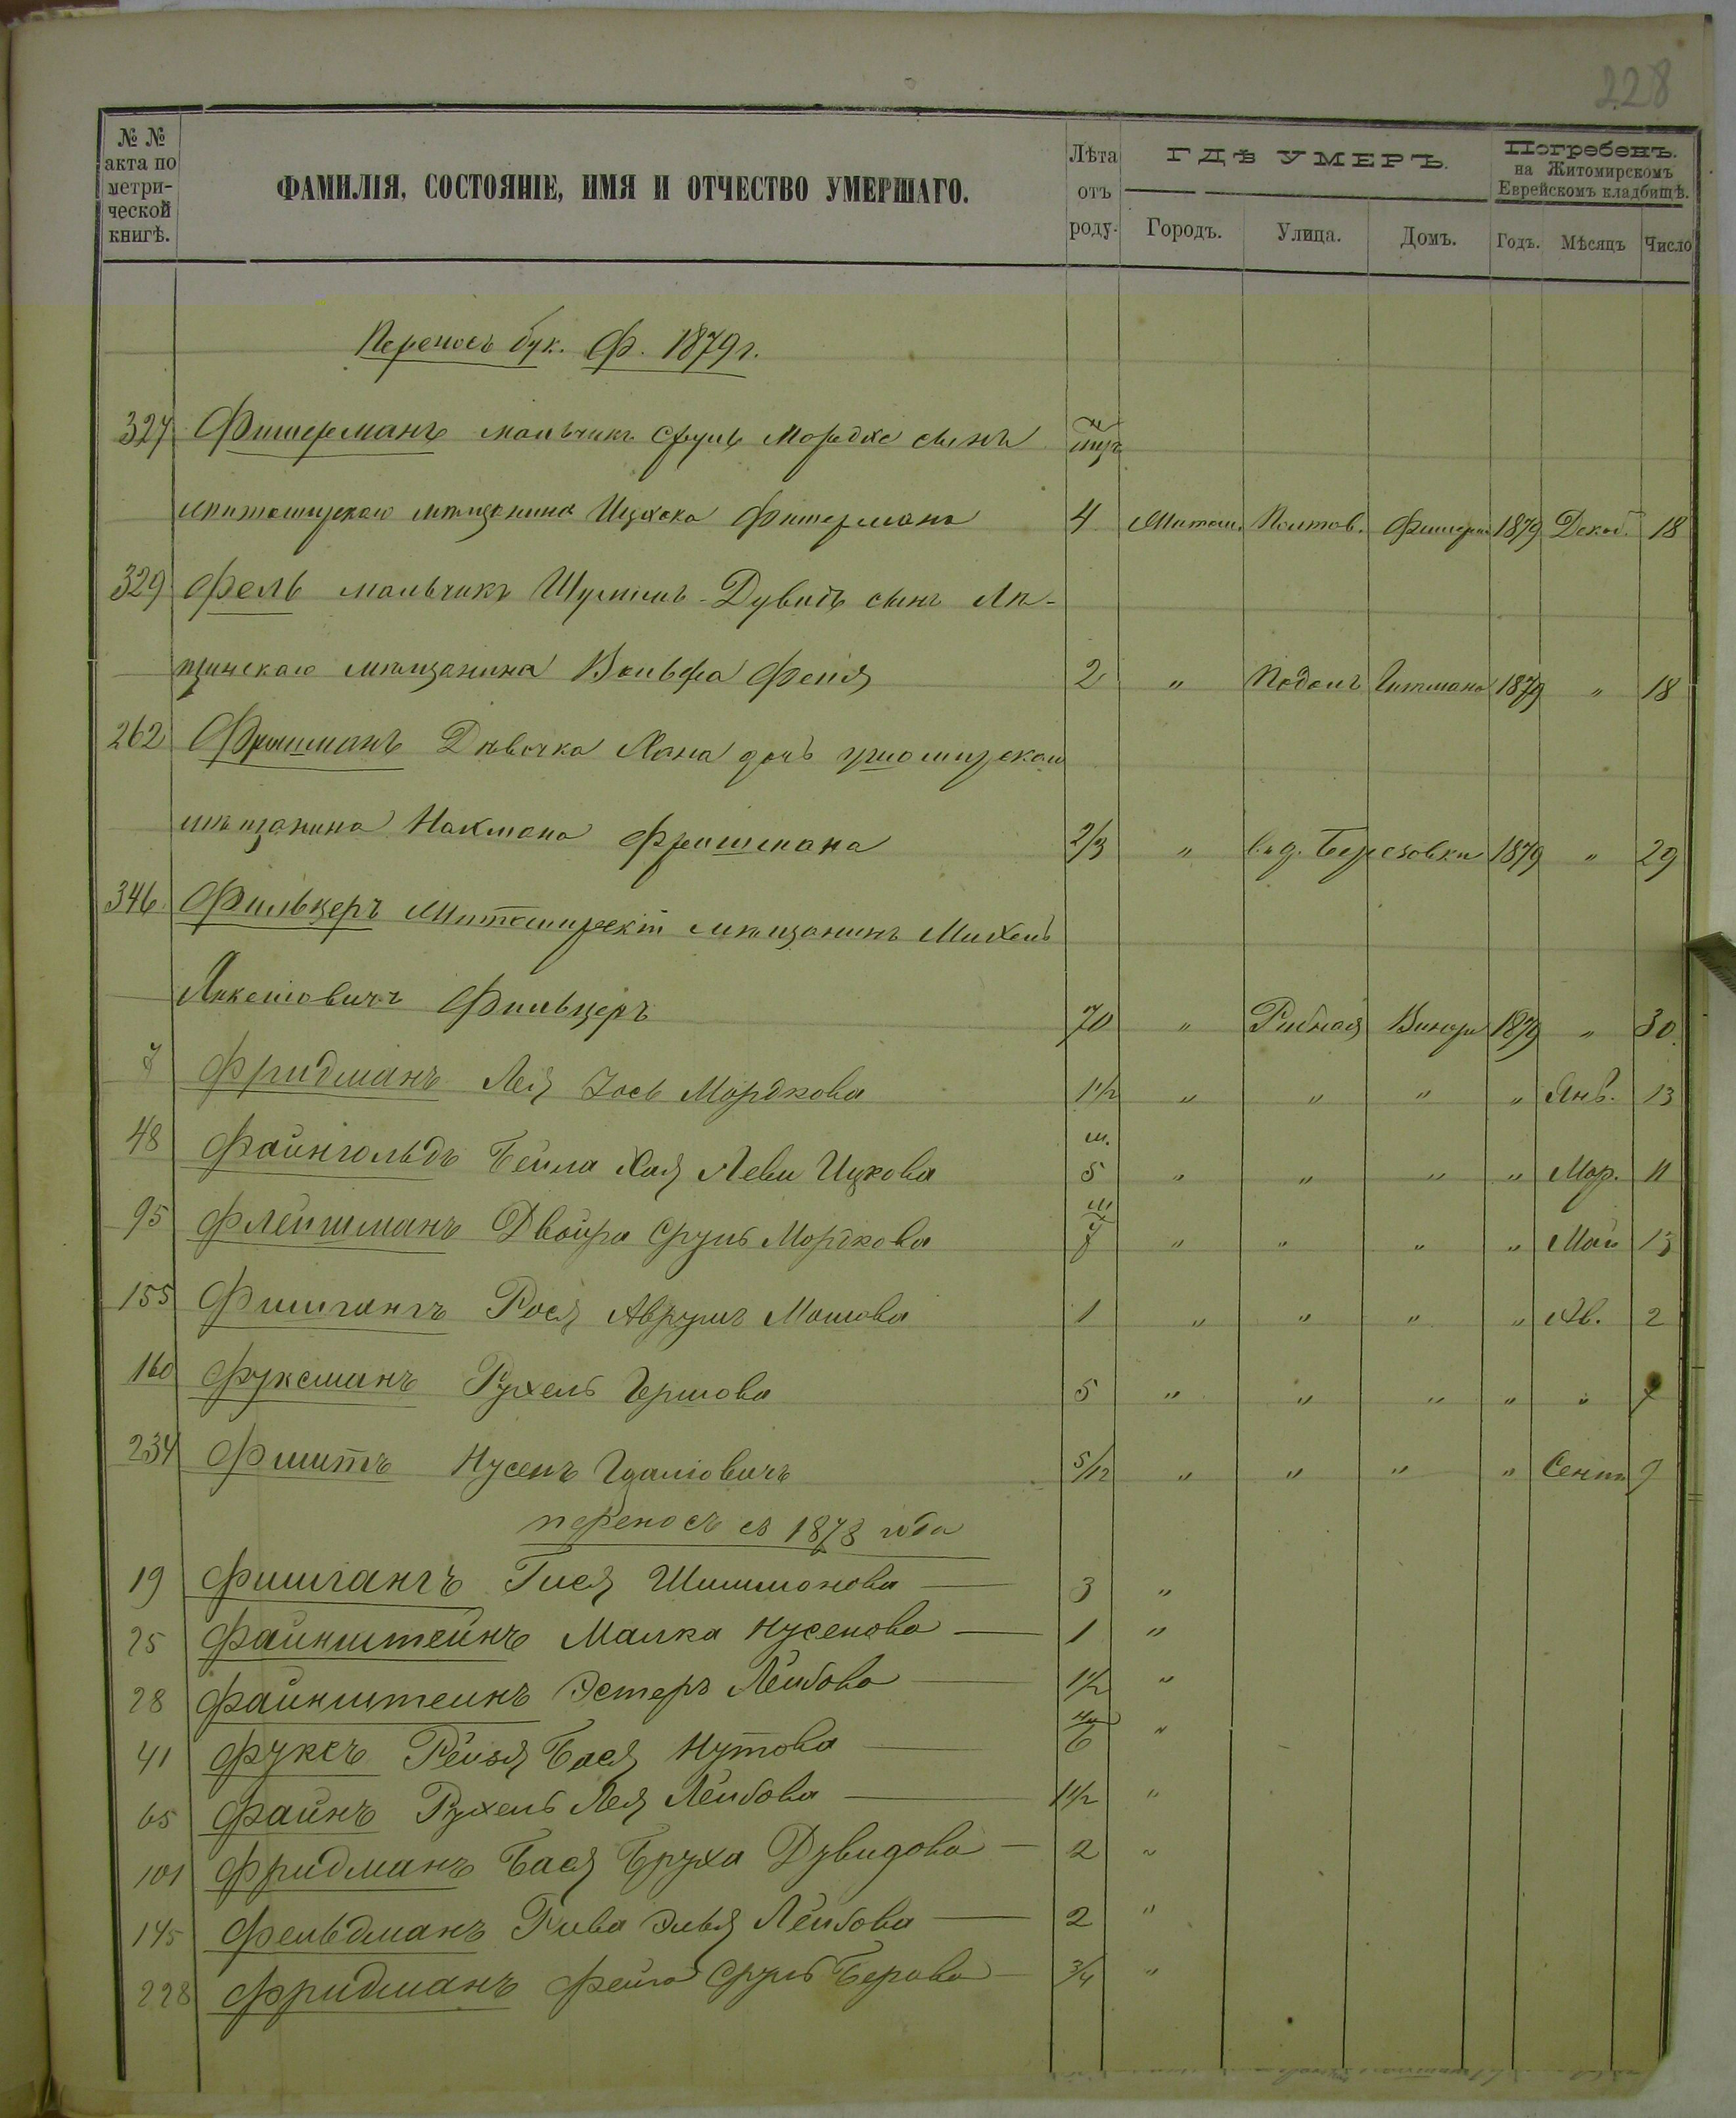 228
№ №
акта по
метри-
ческой
книгѣ.
ФАМИЛІЯ, СОСТОЯНІЕ, ИМЯ И ОТЧЕСТВО УМЕРШАГО.
Лѣта
отъ
роду.
ГДѢ УМЕРЪ.
Городъ. Улица. Домъ.
Погребенъ.
на Житомирскомъ
Еврейскомъ кладбищѣ.
Годъ. Мѣсяцъ Число
Переносъ бук. Ф. 1879 г.
327 Фишерманъ мальчикъ Сруль Мордко сынъ
житомирскаго мѣщанина Ицхока Фишермана 4 Житом. 1879 Декаб. 18
329 Фель мальчикъ Шулимъ-Дувидъ сынъ
мѣщанина Вольфа Феля 2 " Подолъ Гитмана 1879 " 18
262 Фришманъ Дѣвочка Хана дочь
мѣщанина Нахмана Фришмана 2/3 " Березовки 1879 " 29
346 Фильцеръ Житомирскій мѣщанинъ Михель
Янкелевичъ Фильцеръ 70 " Рибная 1879 " 30
7 Фридманъ Лея Іось Мордкова 1 1/2 " " " " Янв. 13
48 Файнгольдъ Бейла Хая Леви Ицкова 5 " " " " Мар. 11
95 Флейшманъ Двойра Сруль Мордкова " " " " Май 13
155 Фишгангъ Рося Аврумъ Мошова 1 " " " " Ав. 2
160 Фуксманъ Рухель Гершова 5 " " " " " 7
234 Фишъ Нусенъ 5/12 " " " " Сент 9
переносъ съ 1878 года
19 Фишгангъ Гися Шимонова 3 "
25 Файнштейнъ Малка Нусенова 1 "
28 Файнштейнъ Эстеръ Лейбова 1 1/2 "
41 Фуксъ Рейзя Бася Нутова 6 "
65 Файнъ Рухель Лея Лейбова 1 1/2 "
101 Фридманъ Бася Бруха Дувидова 2 "
145 Фельдманъ Рива Элья Лейбова 2 "
228 Фридманъ Фейга Сруль Берова 3/4 "